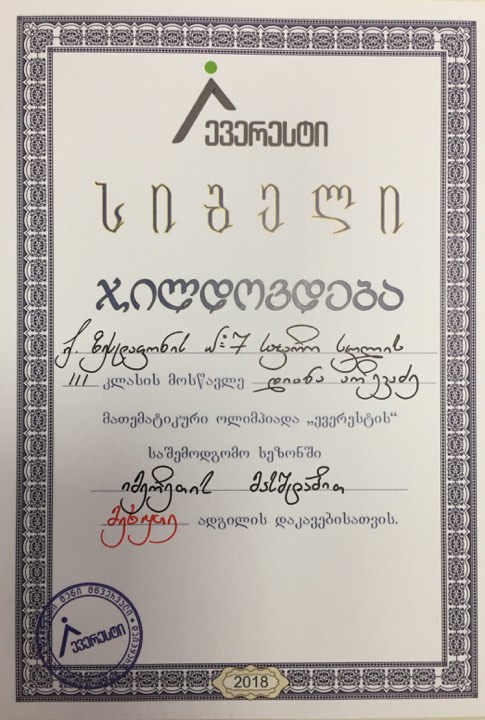 ევერესტი
სიგელი
ჯილდოვდება
ქ. ზესტაფონის №7 საჯარო სკოლის
III კლასის მოსწავლე დიანა
მათემატიკური ოლიმპიადა „ევერესტის“
საშემოდგომო სეზონში
იმერეთის მასშტაბით
მეხუთე ადგილის დაკავებისათვის.
ევერესტი
2018